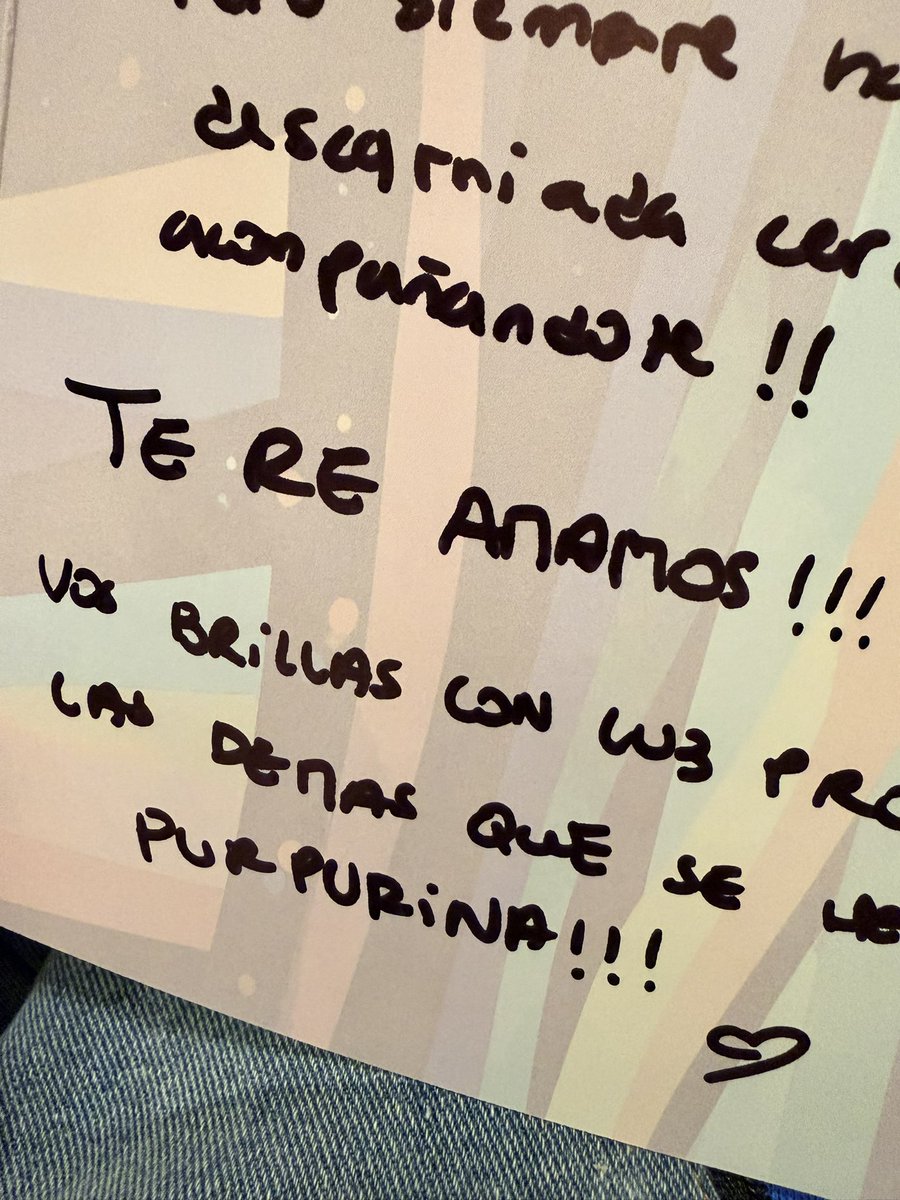 siempre
descarniada
acompañandote !!
TE RE AMAMOS !!!
VOS BRILLAS CON LUZ PRO
LAS DEMAS QUE SE
PURPURINA!!!